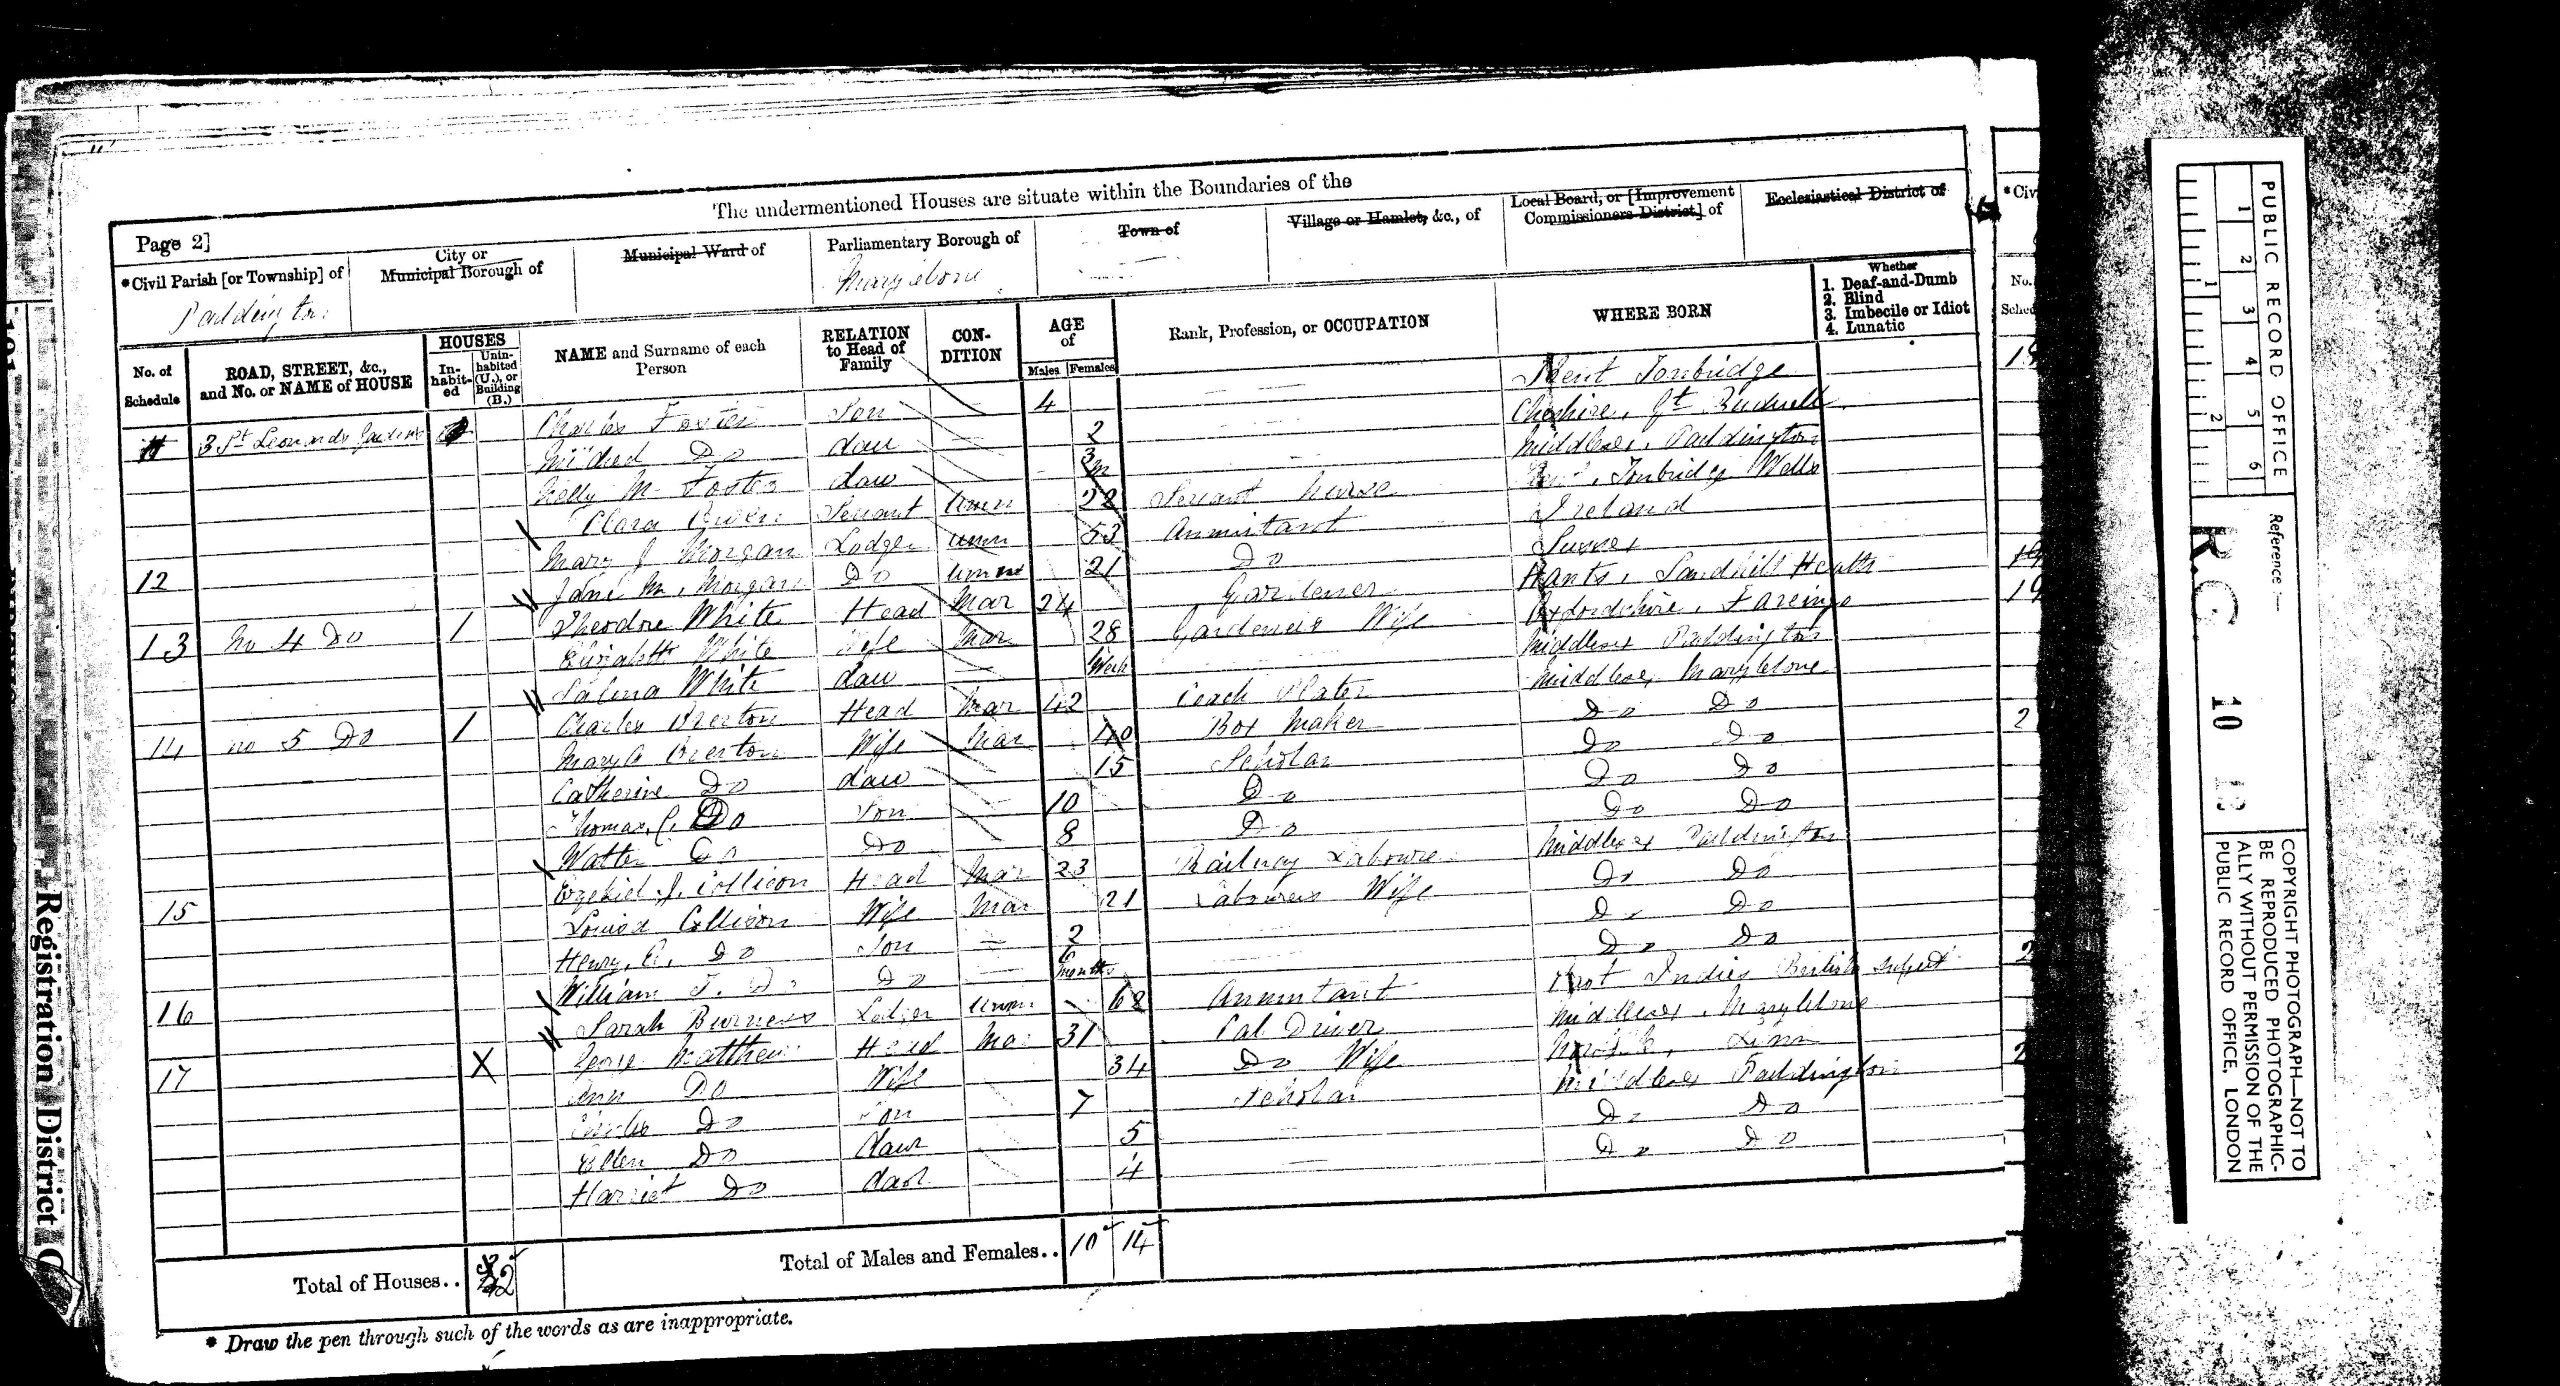 The undermentioned Houses are situate within the Boundaries of the
Page 2]
*Civil Parish [or Township] of
Paddington
City or Municipal Borough of
Municipal Ward of
Parliamentary Borough of
Marylebone
Town of
Village or Hamlet, &c., of
Local Board, or [Improvement Commissioners District] of
Ecclesiastical District of
No. of Schedule
ROAD, STREET, &c., and No. or NAME of HOUSE
HOUSES
In-habit-ed
Unin-habited (U.), or Building (B.)
NAME and Surname of each Person
RELATION to Head of Family
CON-DITION
AGE of
Males Females
Rank, Profession, or OCCUPATION
WHERE BORN
Whether
1. Deaf-and-Dumb
2. Blind
3. Imbecile or Idiot
4. Lunatic
11 3 St Leonards Gardens Charles Foster Son 4 Kent Tonbridge
Mildred Do daw 2 Cheshire, Gt Budwell
Nelly M Foster daw 3 m Middlesex, Paddington
Clara Servant Unm 22 Servant Nurse Kent, Tonbridge Wells
12 Mary J Morgan Lodger Unm 53 Annuitant Ireland
Jane M. Morgan Do Unm 21 Do Sussex
13 No 4 Do 1 Theodore White Head Mar 24 Gardener Hants, Heath
Elizabeth White Wife Mar 28 Gardeners Wife Oxfordshire,
Salina White daw Week Middlesex Paddington
14 no 5 Do 1 Charles Brerton Head Mar 42 Coach Plater Middlesex, Marylebone
Mary A Brerton Wife Mar 40 Box Maker Do Do
Catherine Do daw 15 Scholar Do Do
Thomas C. Do Son 10 Do Do Do
Walter Do Do 8 Do Do Do
15 Ezekiel J. Collison Head Mar 23 Railway Laboure Middlesex Paddington
Louisa Collison Wife Mar 21 Labourers Wife Do Do
Henry, E. Do Son 2 Do Do
William T. Do Do 6 months Do Do
16 Sarah Burness Lodger Unm 62 Annuitant Indies British Subject
17 X George Matthew Head Mar 31 Cab Driver Middlesex, Marylebone
Ann Do Wife 34 Do Wife Norfolk, Linn
Do Son 7 Scholar Middlesex Paddington
Ellen Do daur 5 Do Do
Harriet Do daur 4 Do Do
Total of Houses.. 2
Total of Males and Females.. 10 14
* Draw the pen through such of the words as are inappropriate.
Registration District
*Civ
No.
Sched
PUBLIC RECORD OFFICE
1 2 3 4 5 6
1 2
Reference :—
R.G. 10
COPYRIGHT PHOTOGRAPH—NOT TO BE REPRODUCED PHOTOGRAPHIC-ALLY WITHOUT PERMISSION OF THE PUBLIC RECORD OFFICE, LONDON